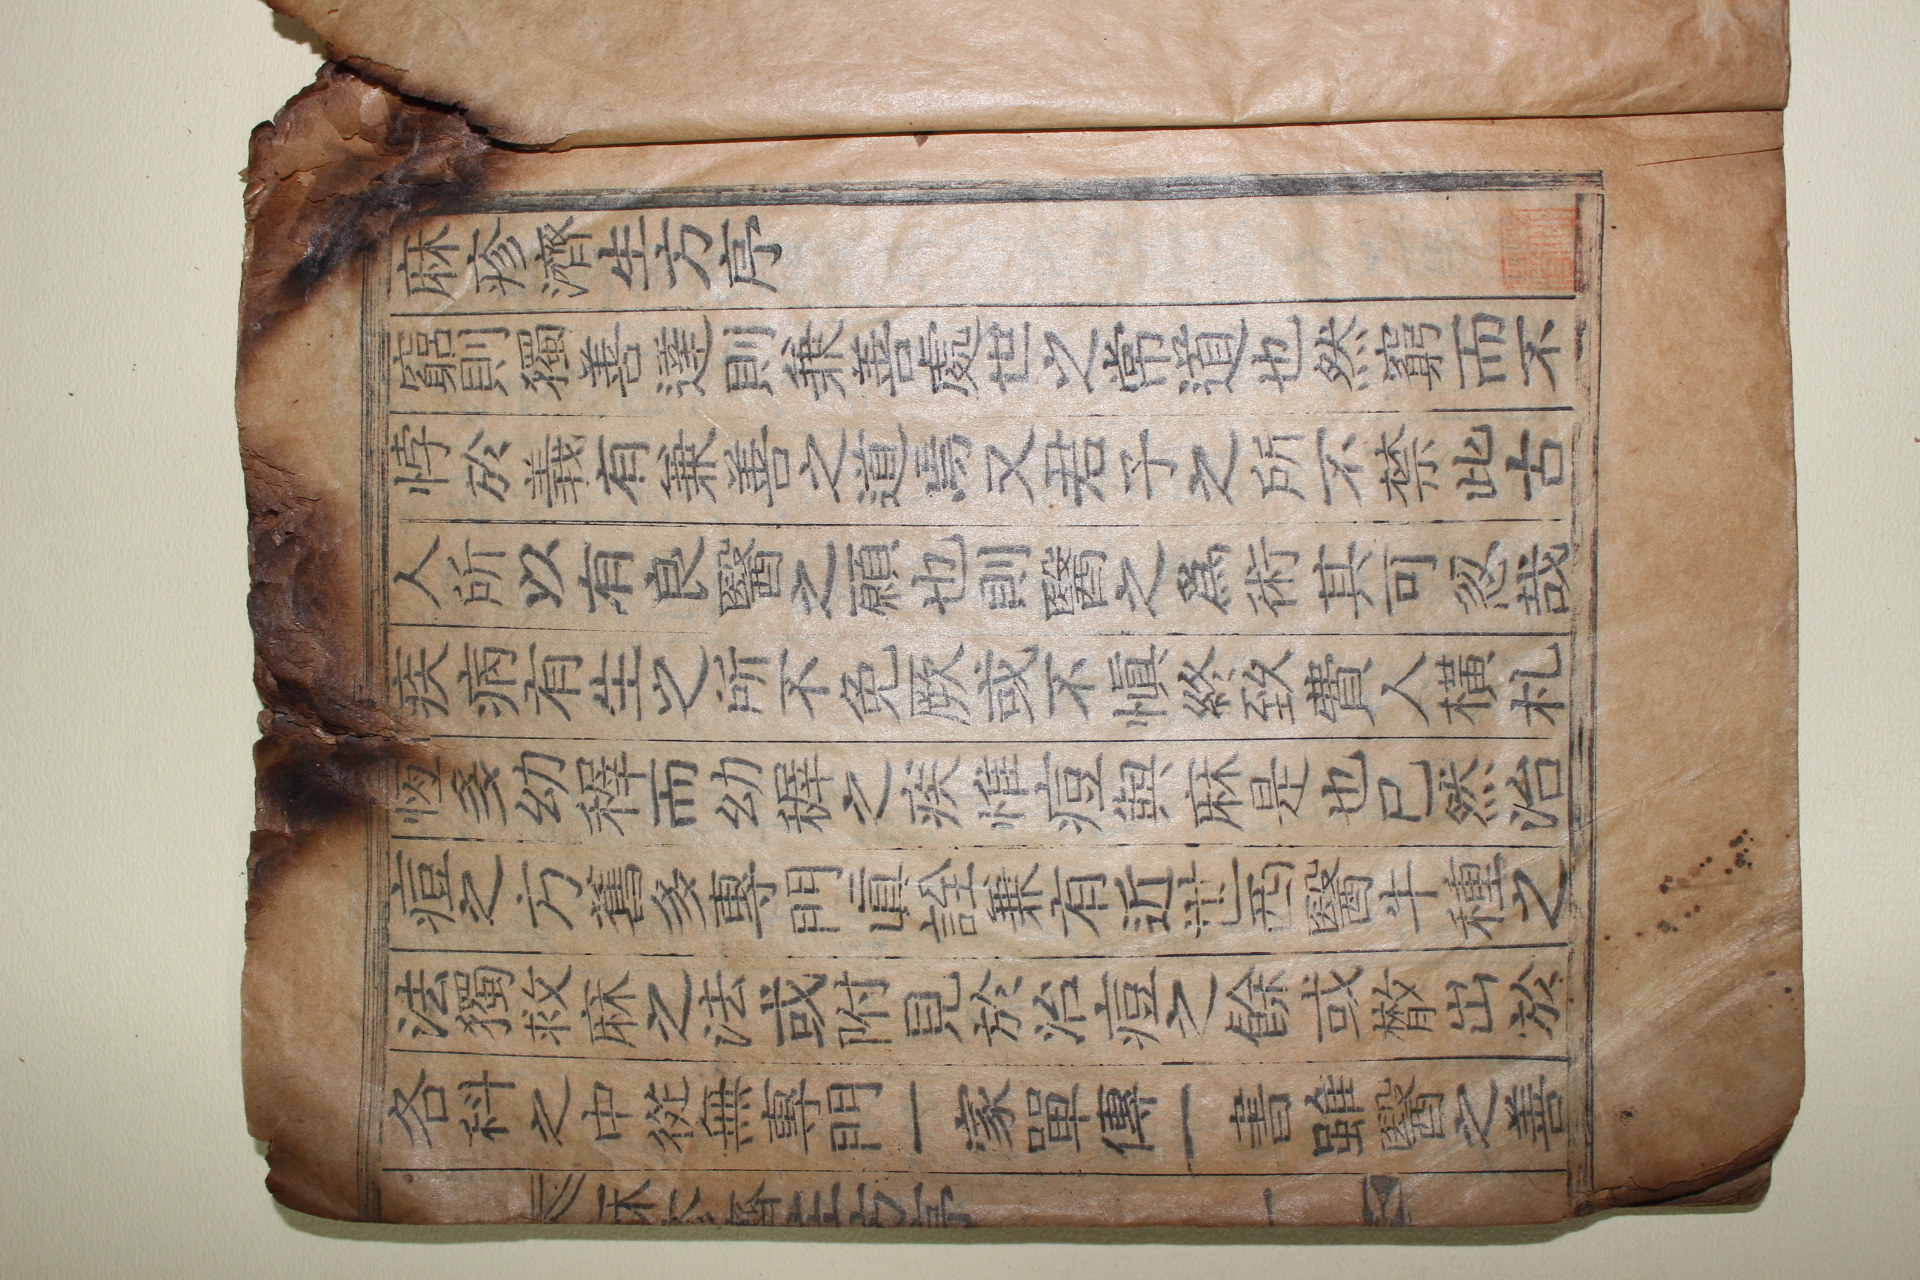 麻疹濟生方序
竆則獨善達則兼善處世之常道也然窮而不
悖於義有兼善之道焉又君子之所不禁此古
人所以有良醫之願也則醫之爲術其可忽哉
疾病有生之所不免厥或不愼終致費人橫札
恆多幼穉而幼穉之疾惟痘與麻是也已然治
痘之方舊多專門眞詮兼有近世西醫牛種之
法獨救麻之法或附見於治痘之餘或散出於
各科之中從無專門一家單傳一書雖醫之善
麻疹濟生方序 一